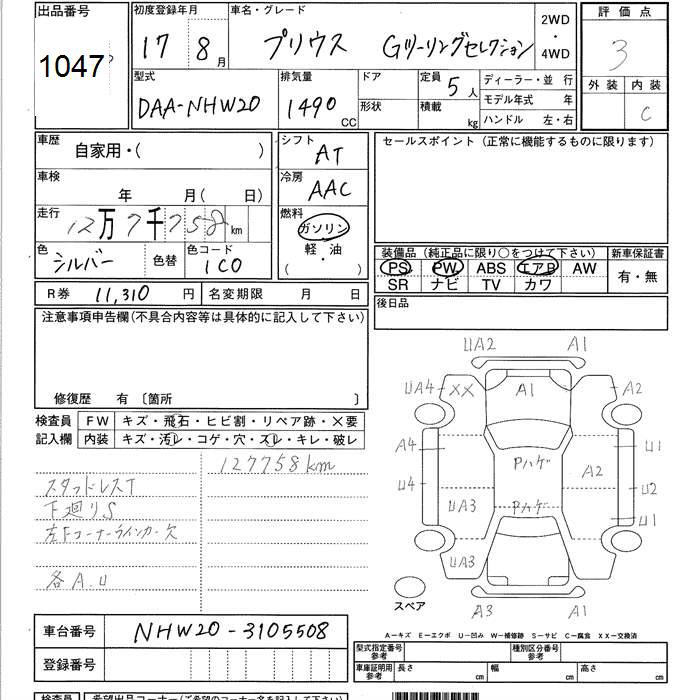 出品番号
1047
初度登録年月
17 8 月
車名・グレード
プリウス Gツーリングセレクション
2WD
・
4WD
評価点
3
型式
DAA-NHW20
排気量
1490 CC
ドア
形状
定員 5 人
積載 kg
ディーラー・並 行
モデル年式 年
ハンドル 左・右
外装 内装
C
車歴
自家用・( )
車検
年 月( 日)
走行
12万7千758 km
色
シルバー
色替
色コード
1C0
シフト
AT
冷房
AAC
燃料
ガソリン
軽・油
( )
セールスポイント (正常に機能するものに限ります)
装備品 (純正品に限り○をつけて下さい)
PS PW ABS エアB AW
SR ナビ TV カワ
新車保証書
有・無
R券 11,310 円
名変期限 月 日
後日品
注意事項申告欄(不具合内容等は具体的に記入して下さい)
修復歴 有 〔箇所 〕
検査員
記入欄
FW キズ・飛石・ヒビ割・リペア跡・×要
内装 キズ・汚レ・コゲ・穴・スレ・キレ・破レ
127758km
スタッドレスT
下廻りS
左Fコーナーウインカー欠
各A.U
UA2 A1
UA4 XX A1 A2
A4 Pハゲ U1
U4 A2 U2
UA3 Pハゲ U1
UA3
A3 A1
スペア
A-キズ E-エクボ U-凹み W-補修跡 S-サビ C-腐食 XX-交換済
車台番号 NHW20-3105508
登録番号
型式指定番号
参考
種別区分番号
参考
車庫証明用
参考
長さ cm
幅 cm
高さ cm
検査員
希望出品コーナー(ご希望のコーナー名を記入して下さい)